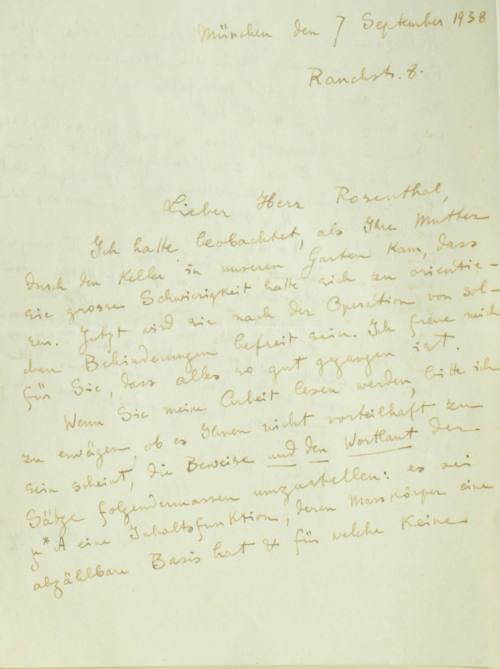 München den 7 September 1938
Rauchstr. 8.
Lieber Herr Rosenthal,
Ich hatte beobachtet, als Ihre Mutter
durch den Keller in unseren Garten kam, dass
sie grosse Schwierigkeit hatte sich zu orientie-
ren. Jetzt wird sie nach der Operation von sol-
chen Behinderungen befreit sein. Ich freue mich
für Sie, dass alles so gut gegangen ist.
Wenn Sie meine Arbeit lesen werden, bitte ich
zu erwägen, ob es Ihnen nicht vorteilhaft zu
sein scheint, die Beweise und den Wortlaut der
Sätze folgendermassen umzustellen: es sei
A eine Inhaltsfunktion, deren Masskörper eine
abzählbare Basis hat & für welche keine